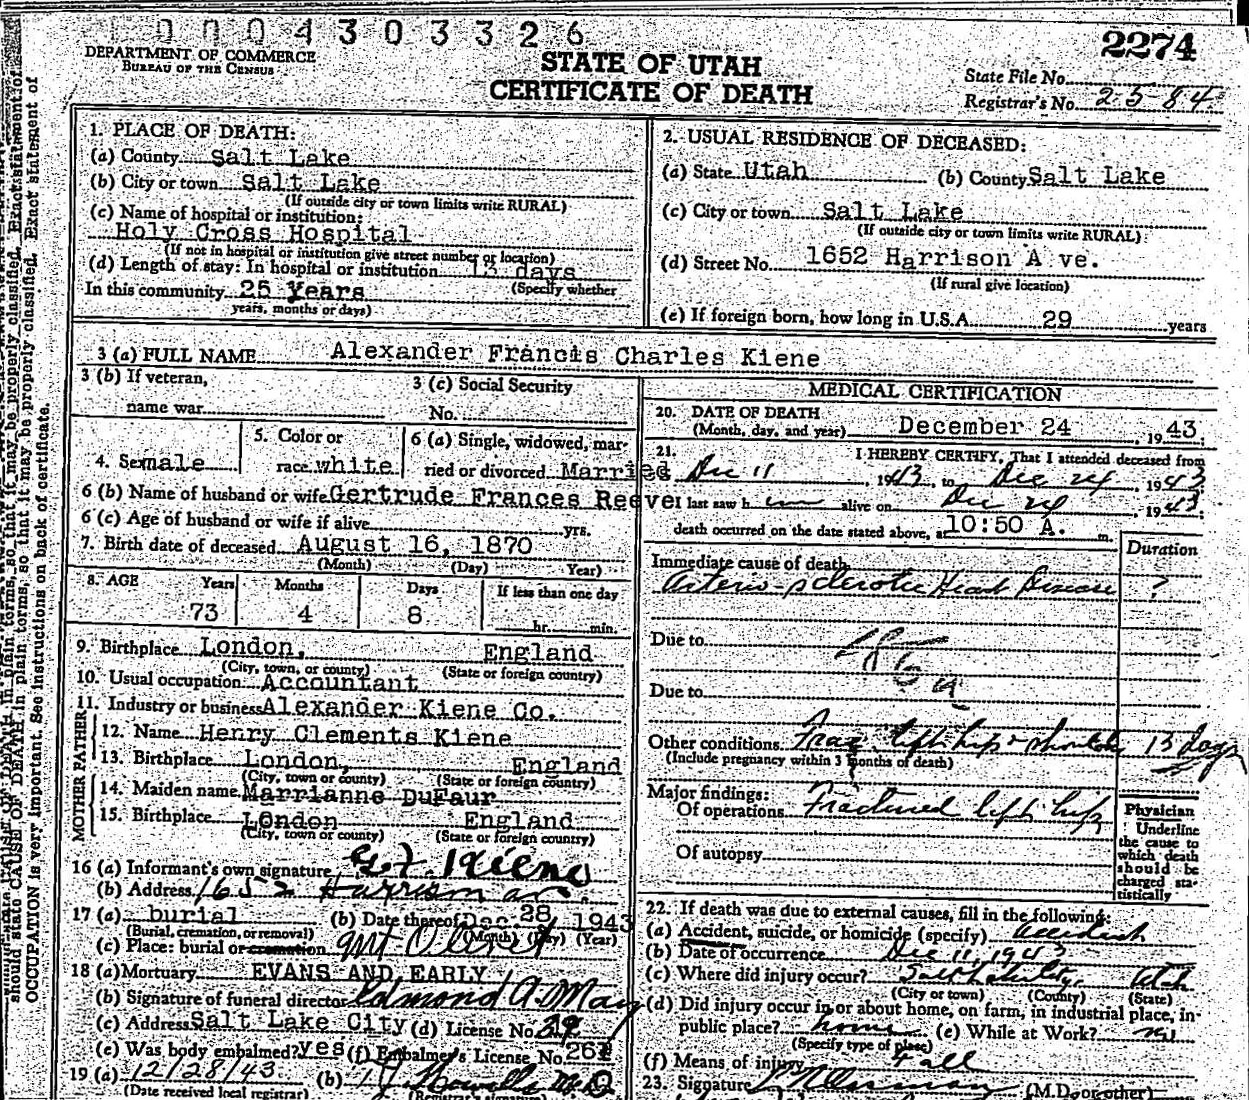 0004303326
2274
DEPARTMENT OF COMMERCE
BUREAU OF THE CENSUS
STATE OF UTAH
CERTIFICATE OF DEATH
State File No.
Registrar's No. 2584
1. PLACE OF DEATH:
(a) County Salt Lake
(b) City or town Salt Lake
(If outside city or town limits write RURAL)
(c) Name of hospital or institution:
Holy Cross Hospital
(If not in hospital or institution give street number or location)
(d) Length of stay: In hospital or institution 13 days
(Specify whether
In this community 25 Years
years, months or days)
2. USUAL RESIDENCE OF DECEASED:
(a) State Utah (b) County Salt Lake
(c) City or town Salt Lake
(If outside city or town limits write RURAL)
(d) Street No. 1652 Harrison A ve.
(If rural give location)
(e) If foreign born, how long in U.S.A. 29 years
3 (a) FULL NAME Alexander Francis Charles Kiene
3 (b) If veteran,
name war
3 (c) Social Security
No.
4. Sex male
5. Color or
race white
6 (a) Single, widowed, mar-
ried or divorced Married
6 (b) Name of husband or wife Gertrude Frances Reeve
6 (c) Age of husband or wife if alive yrs.
7. Birth date of deceased August 16, 1870
(Month) (Day) Year)
8. AGE Years Months Days If less than one day
73 4 8 hr. min.
9. Birthplace London, England
(City, town, or county) (State or foreign country)
10. Usual occupation Accountant
11. Industry or business Alexander Kiene Co.
FATHER
12. Name Henry Clements Kiene
13. Birthplace London, England
(City, town or county) (State or foreign country)
MOTHER
14. Maiden name Marrianne DuFaur
15. Birthplace London England
(City, town or county) (State or foreign country)
16 (a) Informant's own signature G.F. Kiene
(b) Address 1652 Harrison av.
17 (a) burial (b) Date thereof Dec. 28, 1943
(Burial, cremation, or removal) (Month) (Day) (Year)
(c) Place: burial or cremation Mt Olivet
18 (a) Mortuary EVANS AND EARLY
(b) Signature of funeral director Edmond A. May
(c) Address Salt Lake City (d) License No. 39
(e) Was body embalmed? yes (f) Embalmer's License No.
19 (a) 12/28/43 (b)
(Date received local registrar) (Registrar's signature)
MEDICAL CERTIFICATION
20. DATE OF DEATH
(Month, day, and year) December 24, 1943.
21. I HEREBY CERTIFY, That I attended deceased from
Dec 11, 1943, to Dec 24, 1943
I last saw him alive on Dec 24, 1943
death occurred on the date stated above, at 10:50 A. m.
Duration
Immediate cause of death
Arterio-sclerotic Heart Disease ?
Due to
Due to
Other conditions Frac left hip & shoulder 13 days
(Include pregnancy within 3 months of death)
Major findings:
Of operations Fractured left hip
Of autopsy
Physician
Underline
the cause to
which death
should be
charged sta-
tistically
22. If death was due to external causes, fill in the following:
(a) Accident, suicide, or homicide (specify) accident
(b) Date of occurrence Dec 11, 1943
(c) Where did injury occur? Salt Lake City, Utah
(City or town) (County) (State)
(d) Did injury occur in or about home, on farm, in industrial place, in
public place? home (e) While at Work? no
(Specify type of place)
(f) Means of injury Fall
23. Signature (M.D. or other)
should state CAUSE OF DEATH in plain terms, so that it may be properly classified. Exact statement of
OCCUPATION is very important. See instructions on back of certificate.